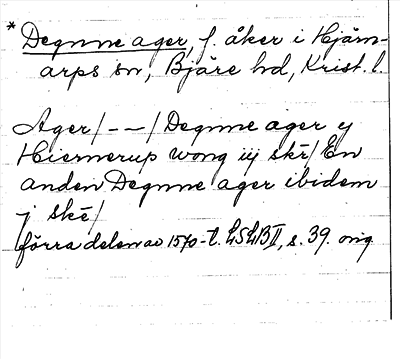 * Degnne ager, f. åker i Hjärn-
arps sn, Bjäre hd, Krist. l.
Ager/ - - / Degnne ager y
Hiernerup wong iij skr/ En
anden Degnne ager ibidem
j skē/
förra delen av 1570-t. LSLB II, s. 39. orig